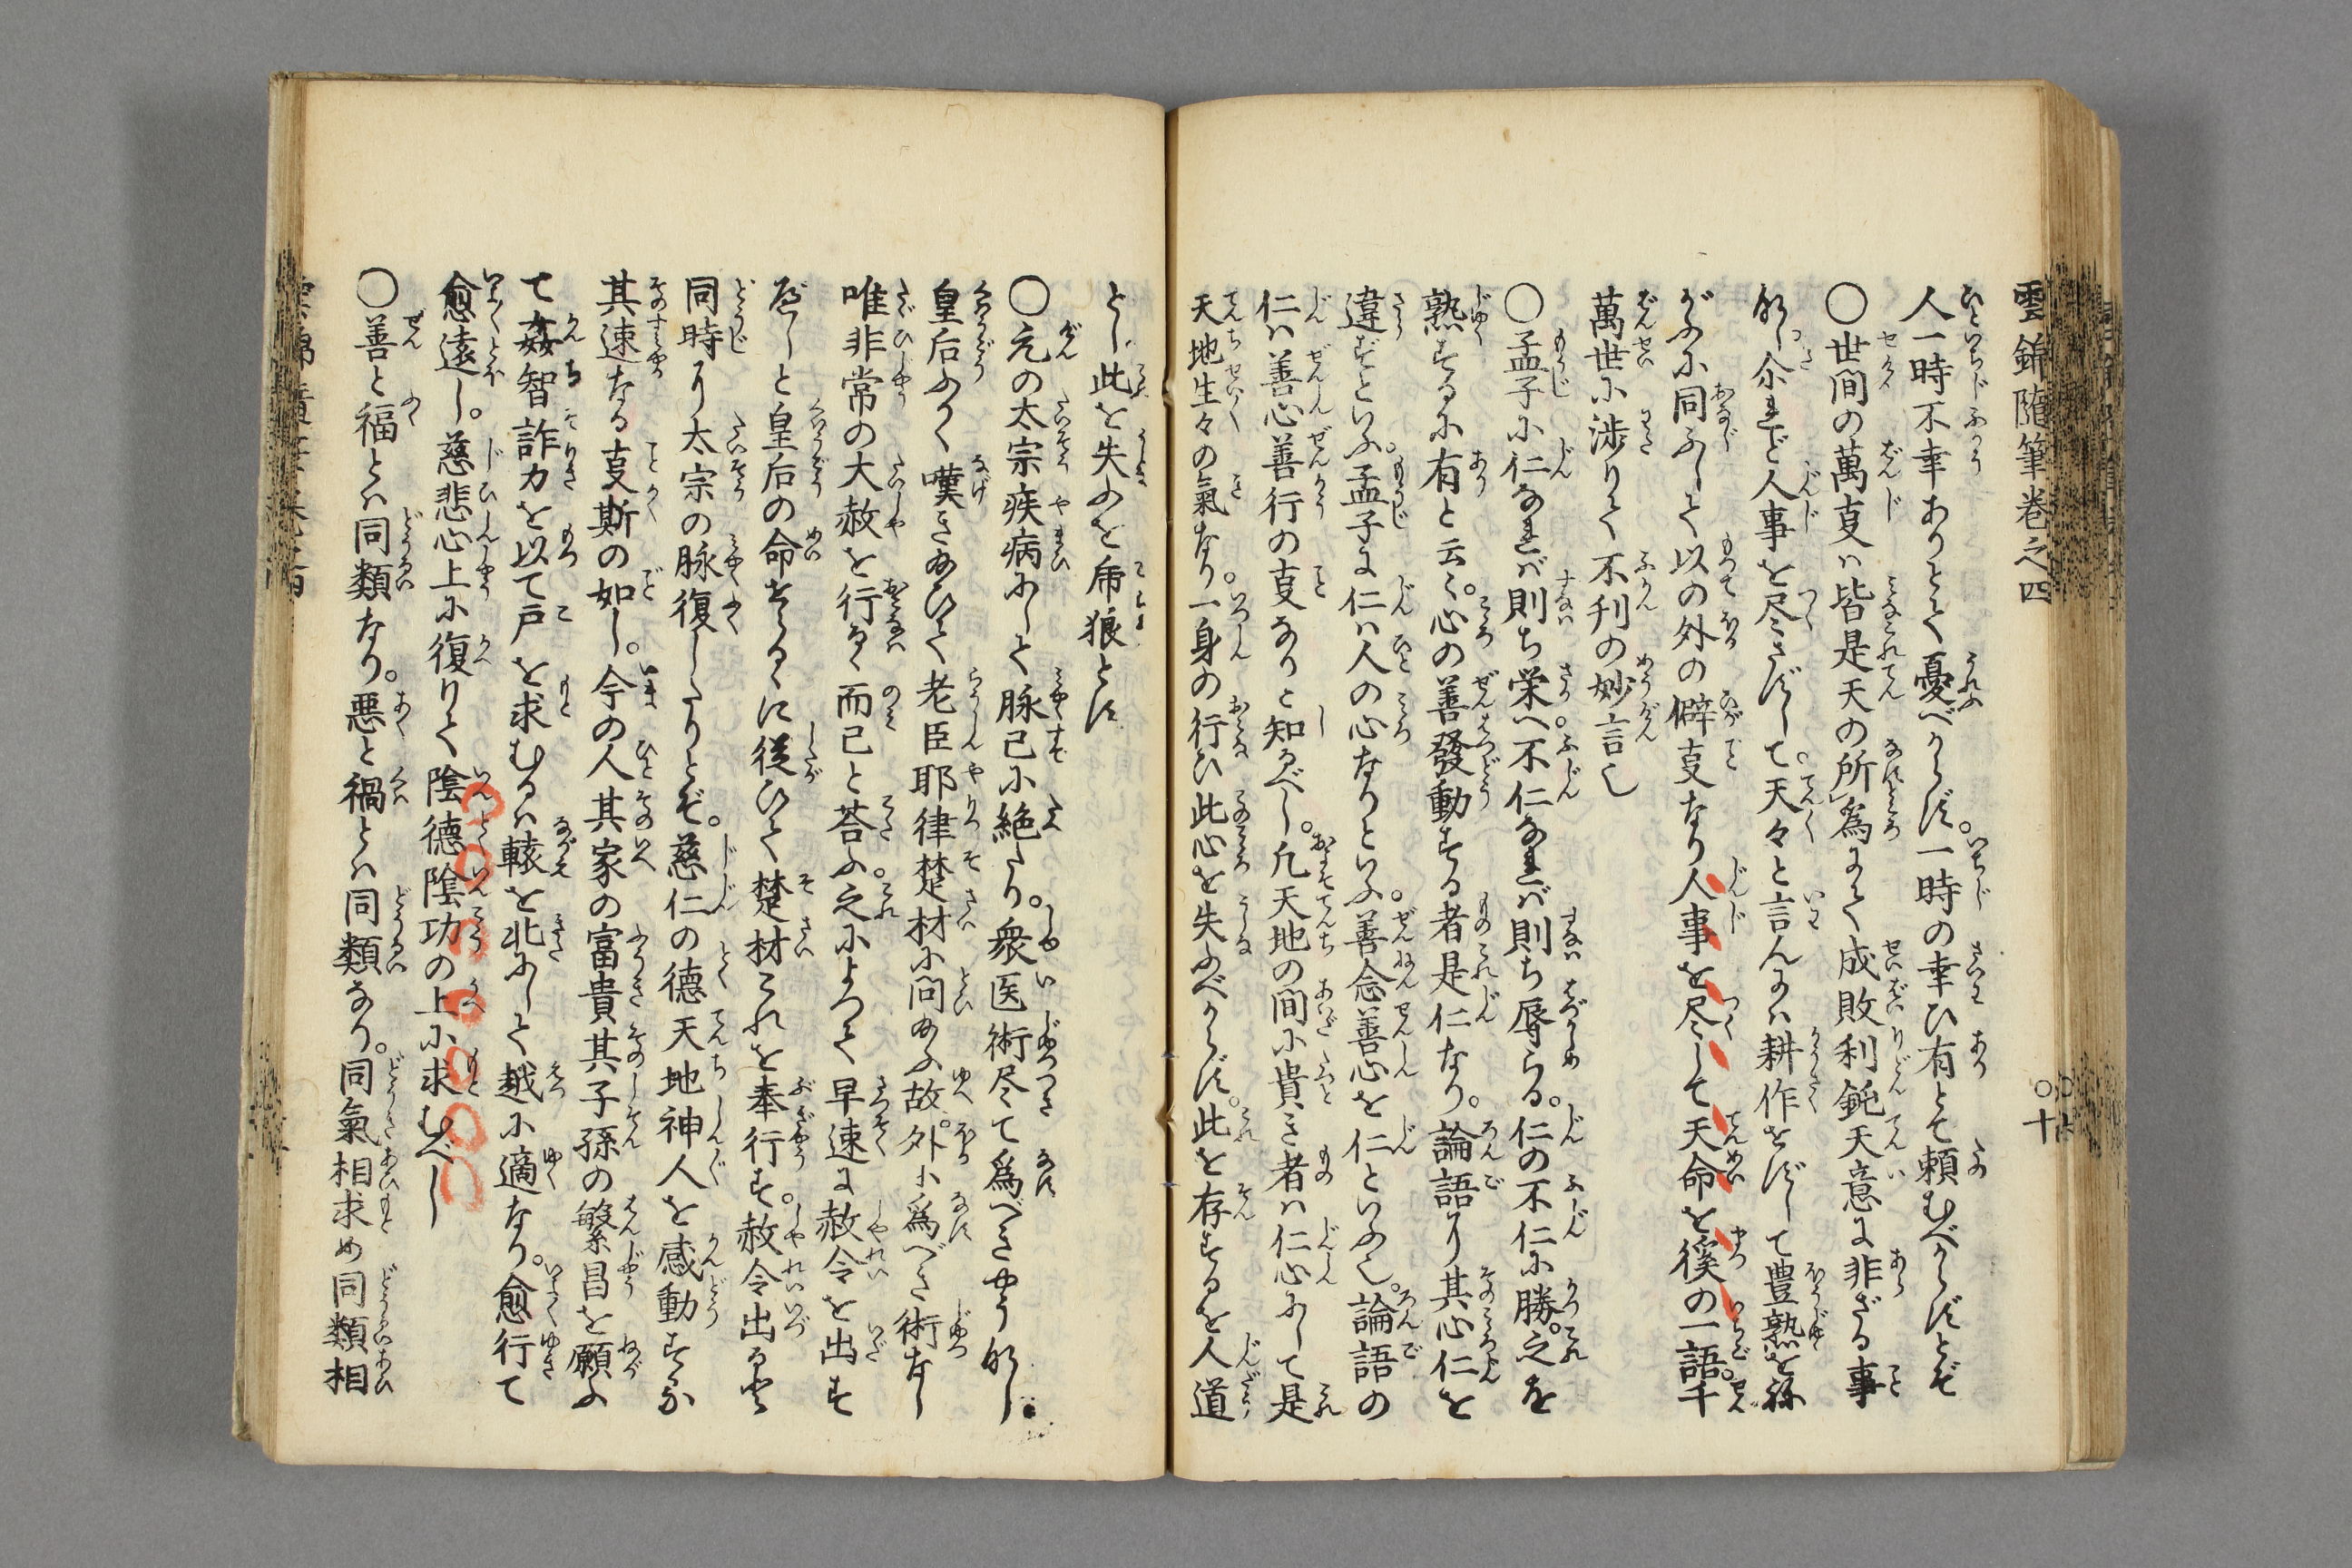 雲錦随筆巻之四
〇十
人一時不幸ありとて憂べからず。一時の幸ひ有とて頼むべからずとぞ
〇世間の萬叓ハ皆是天の所為にて成敗利鈍天意に非ざる事
なし尒れど人事を尽さずして。天々と言んにハ耕作をずして豊熟を祢
がふに同ふして以の外の僻叓なり人事を尽して天命を徯の一語。千
萬世に渉りて不刊の妙言也
〇孟子に仁なれバ則ち栄へ。不仁なれバ則ち辱らる。仁の不仁に勝。之を
熟するに有と云々。心の善發動する者是仁なり。論語り其心仁を
違ずといふ。孟子に仁ハ人の心なりといふ。善念善心を仁といふ也。論語の
仁ハ善心善行の叓なりと知るべし。凡天地の間に貴き者ハ仁心にして是
天地生々の氣なり。一身の行ひ此心を失ふべからず。此を存するを人道
とし此を失ふを乕狼とす
〇元の太宗疾病にして脉已に絶たり。衆医術尽て為べきやうなし
皇后ふかく嘆き給ひて老臣耶律楚材に問給ふ故。外に為べき術なし
唯非常の大赦を行なへ而已と荅ふ。之によつて早速に赦令を出す
べしと皇后の命せらるゝに従ひて楚材これを奉行す。赦令出ると
同時り太宗の脉復したりとぞ。慈仁の德天地神人を感動する
其速なる叓斯の如し。今の人其家の富貴其子孫の繁昌を願ふ
て姦智詐力を以て戸を求むるハ轅を北にして越に適なり。愈行て
愈遠し。慈悲心上に復りて陰德陰功の上に求むべし
〇善と福とハ同類なり。悪と禍とハ同類なり。同氣相求め同類相